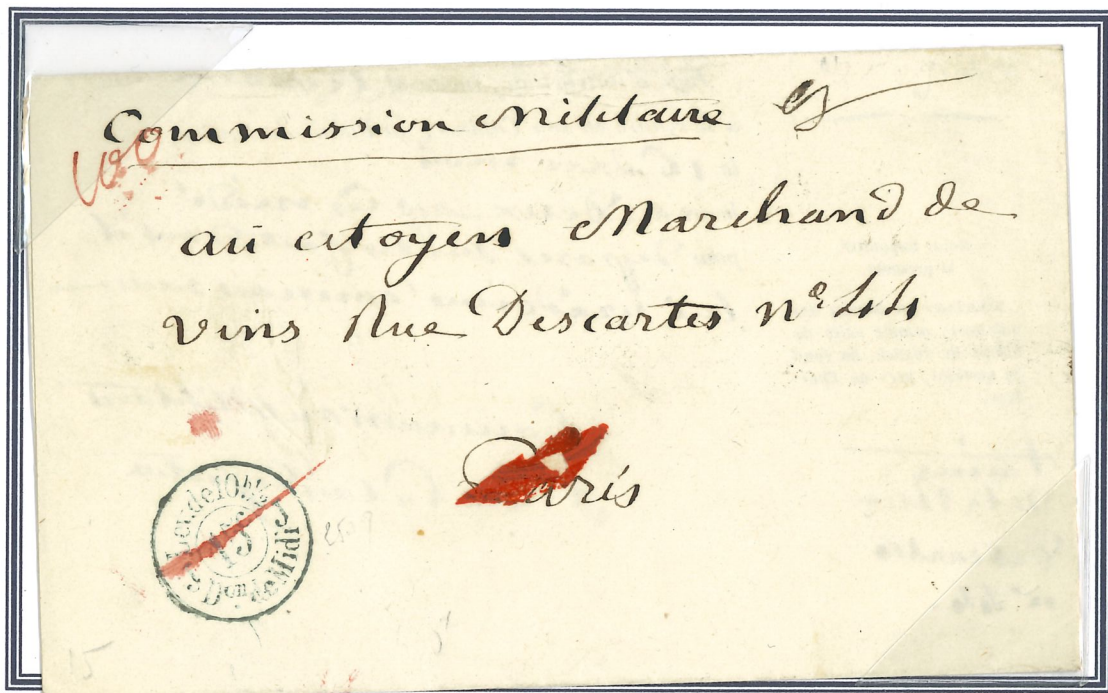 Commission Militaire
au citoyen Marchand de
vins Rue Descartes n° 44
Paris
Lev. de 10 h
15